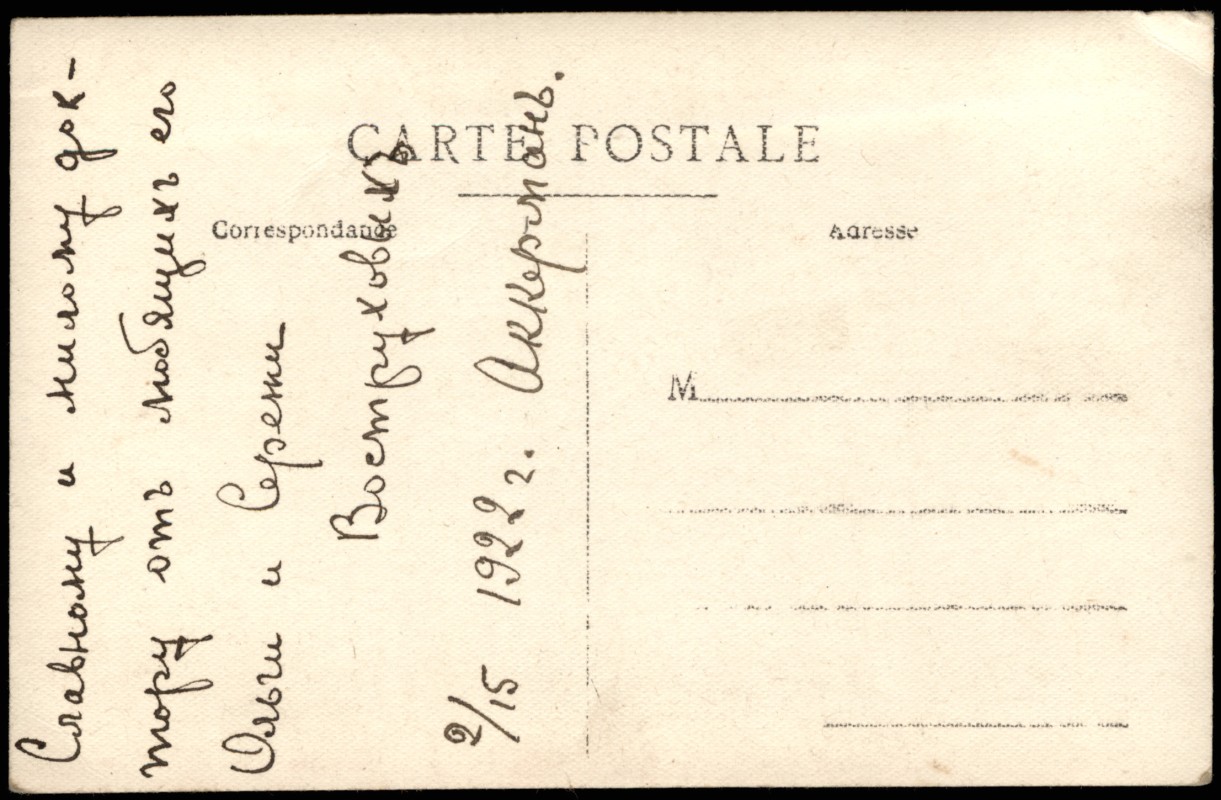 CARTE POSTALE
Correspondance
Adresse
M
Славному и милому док-
тору отъ любящихъ его
Ольги и Сережи
Воструховыхъ
2/15 1922 г. Аккерманъ.